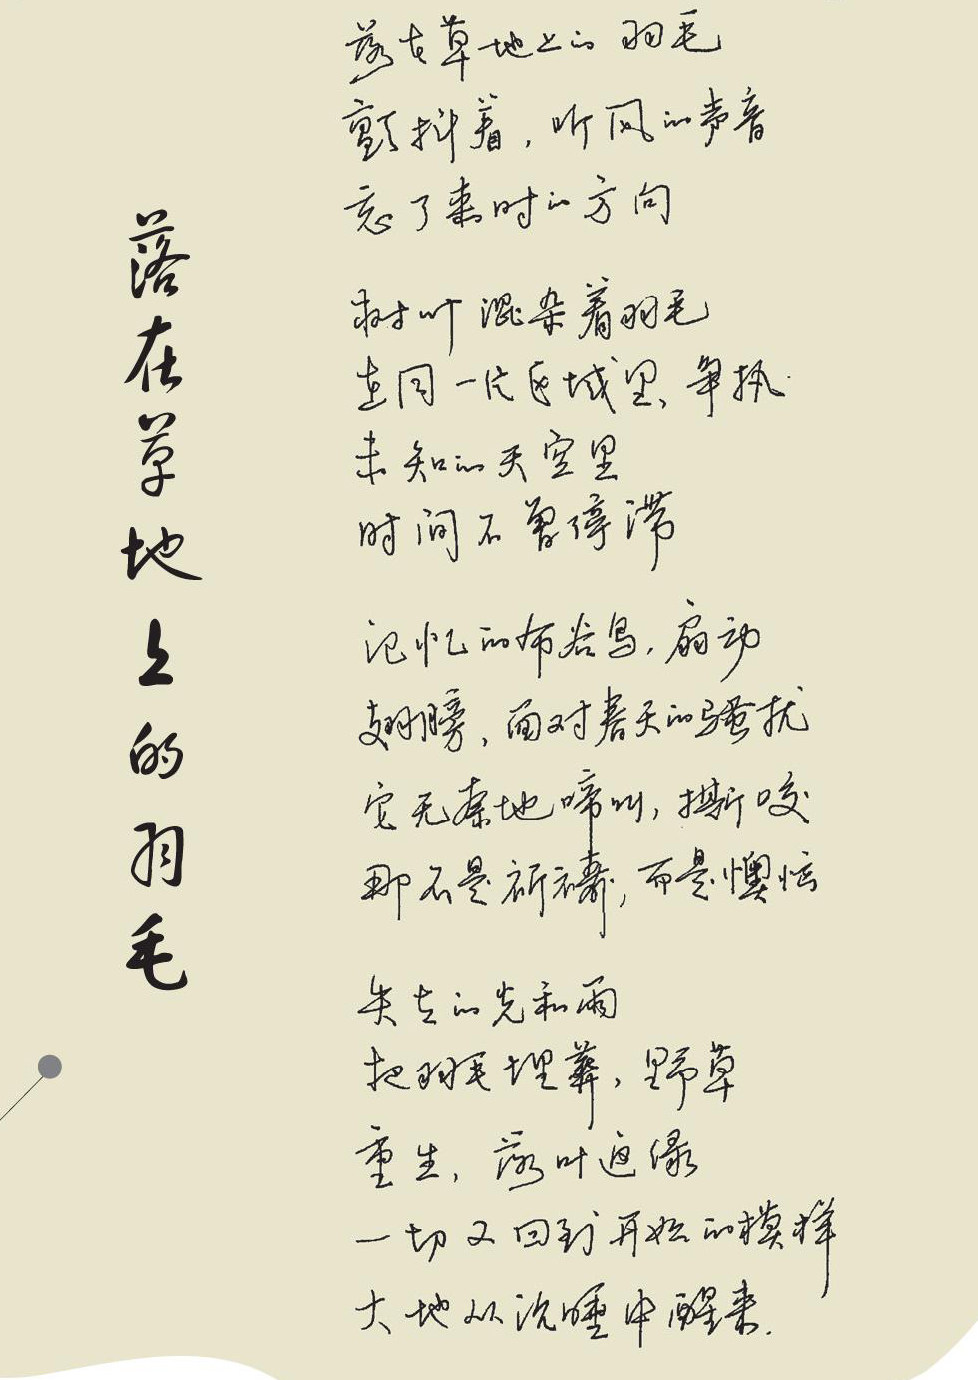 落在草地上的羽毛
落在草地上的羽毛
颤抖着，听风的声音
忘了来时的方向
树叶混杂着羽毛
在同一片区域里、争执.
未知的天空里
时间不曾停滞
记忆的布谷鸟，扇动
翅膀，面对春天的骚扰
它无奈地啼叫，撕咬
那不是祈祷，而是懊恼
失去的光和雨
把羽毛埋葬，野草
重生，落叶返绿
一切又回到开始的模样
大地从沉睡中醒来.